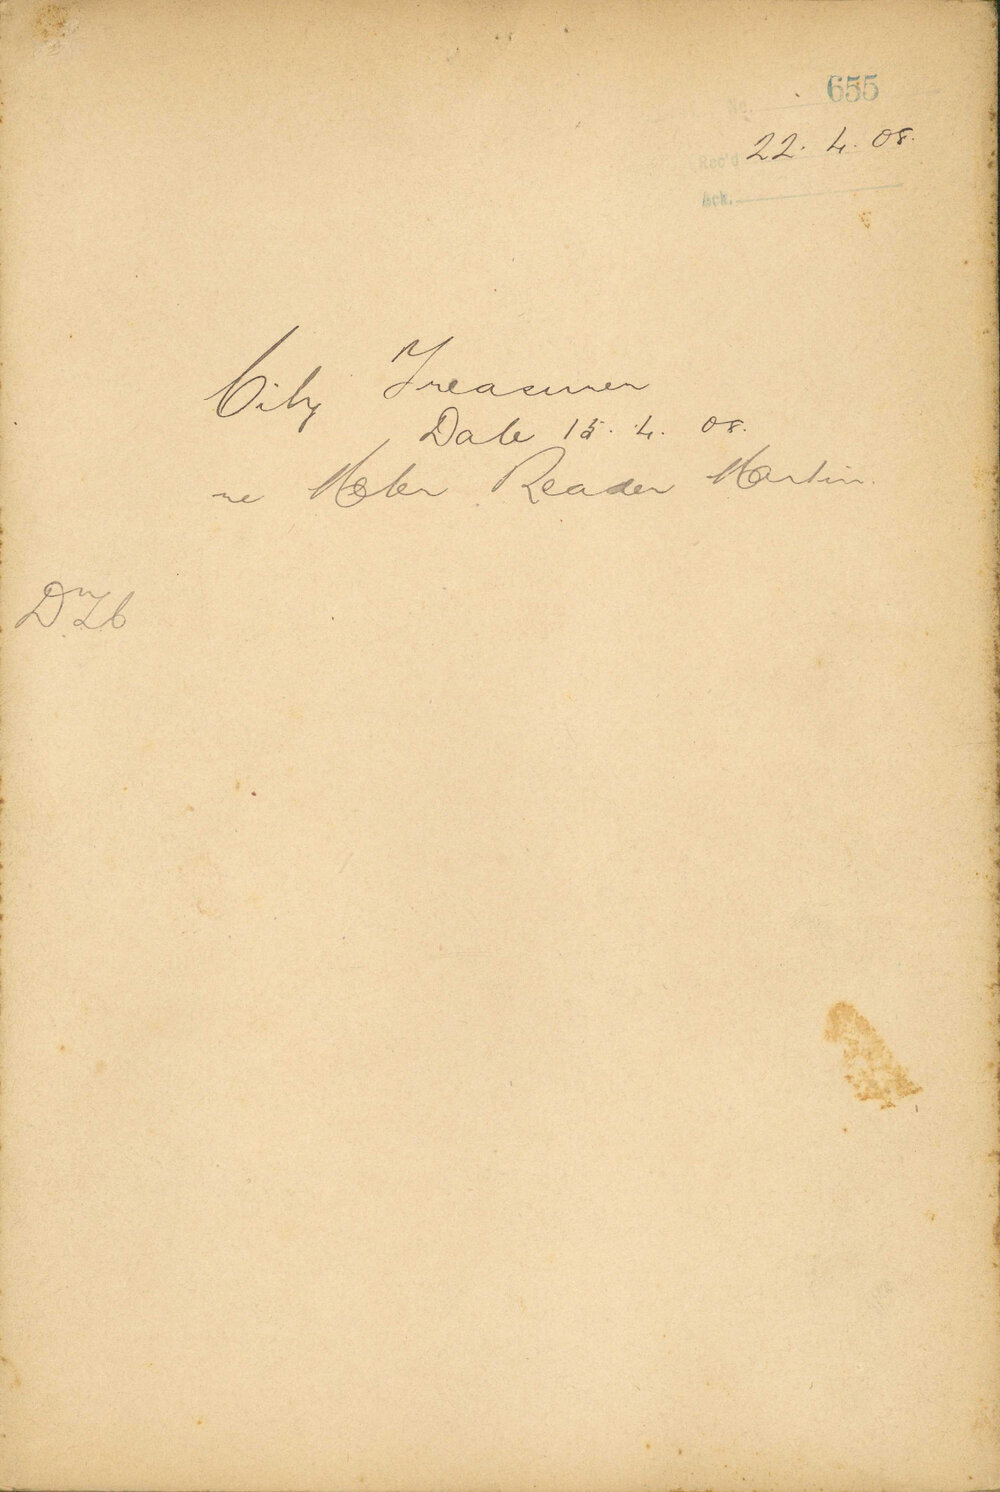 No. 655
Rec'd 22. 4. 08.
Ack.
City Treasurer
Date 15. 4. 08.
re Meter Reader Martin.